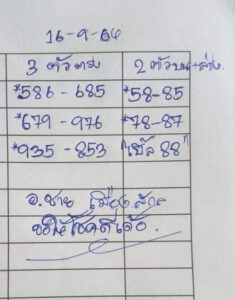 16-9-64
3 ตัวตรง 2 ตัวบน+ล่าง
*586-685 *58-85
*679-976 *78-87
*935-853 "เบิ้ล 88"
อ.ชาย เมือง
ขอให้โชคดีเด้อ.